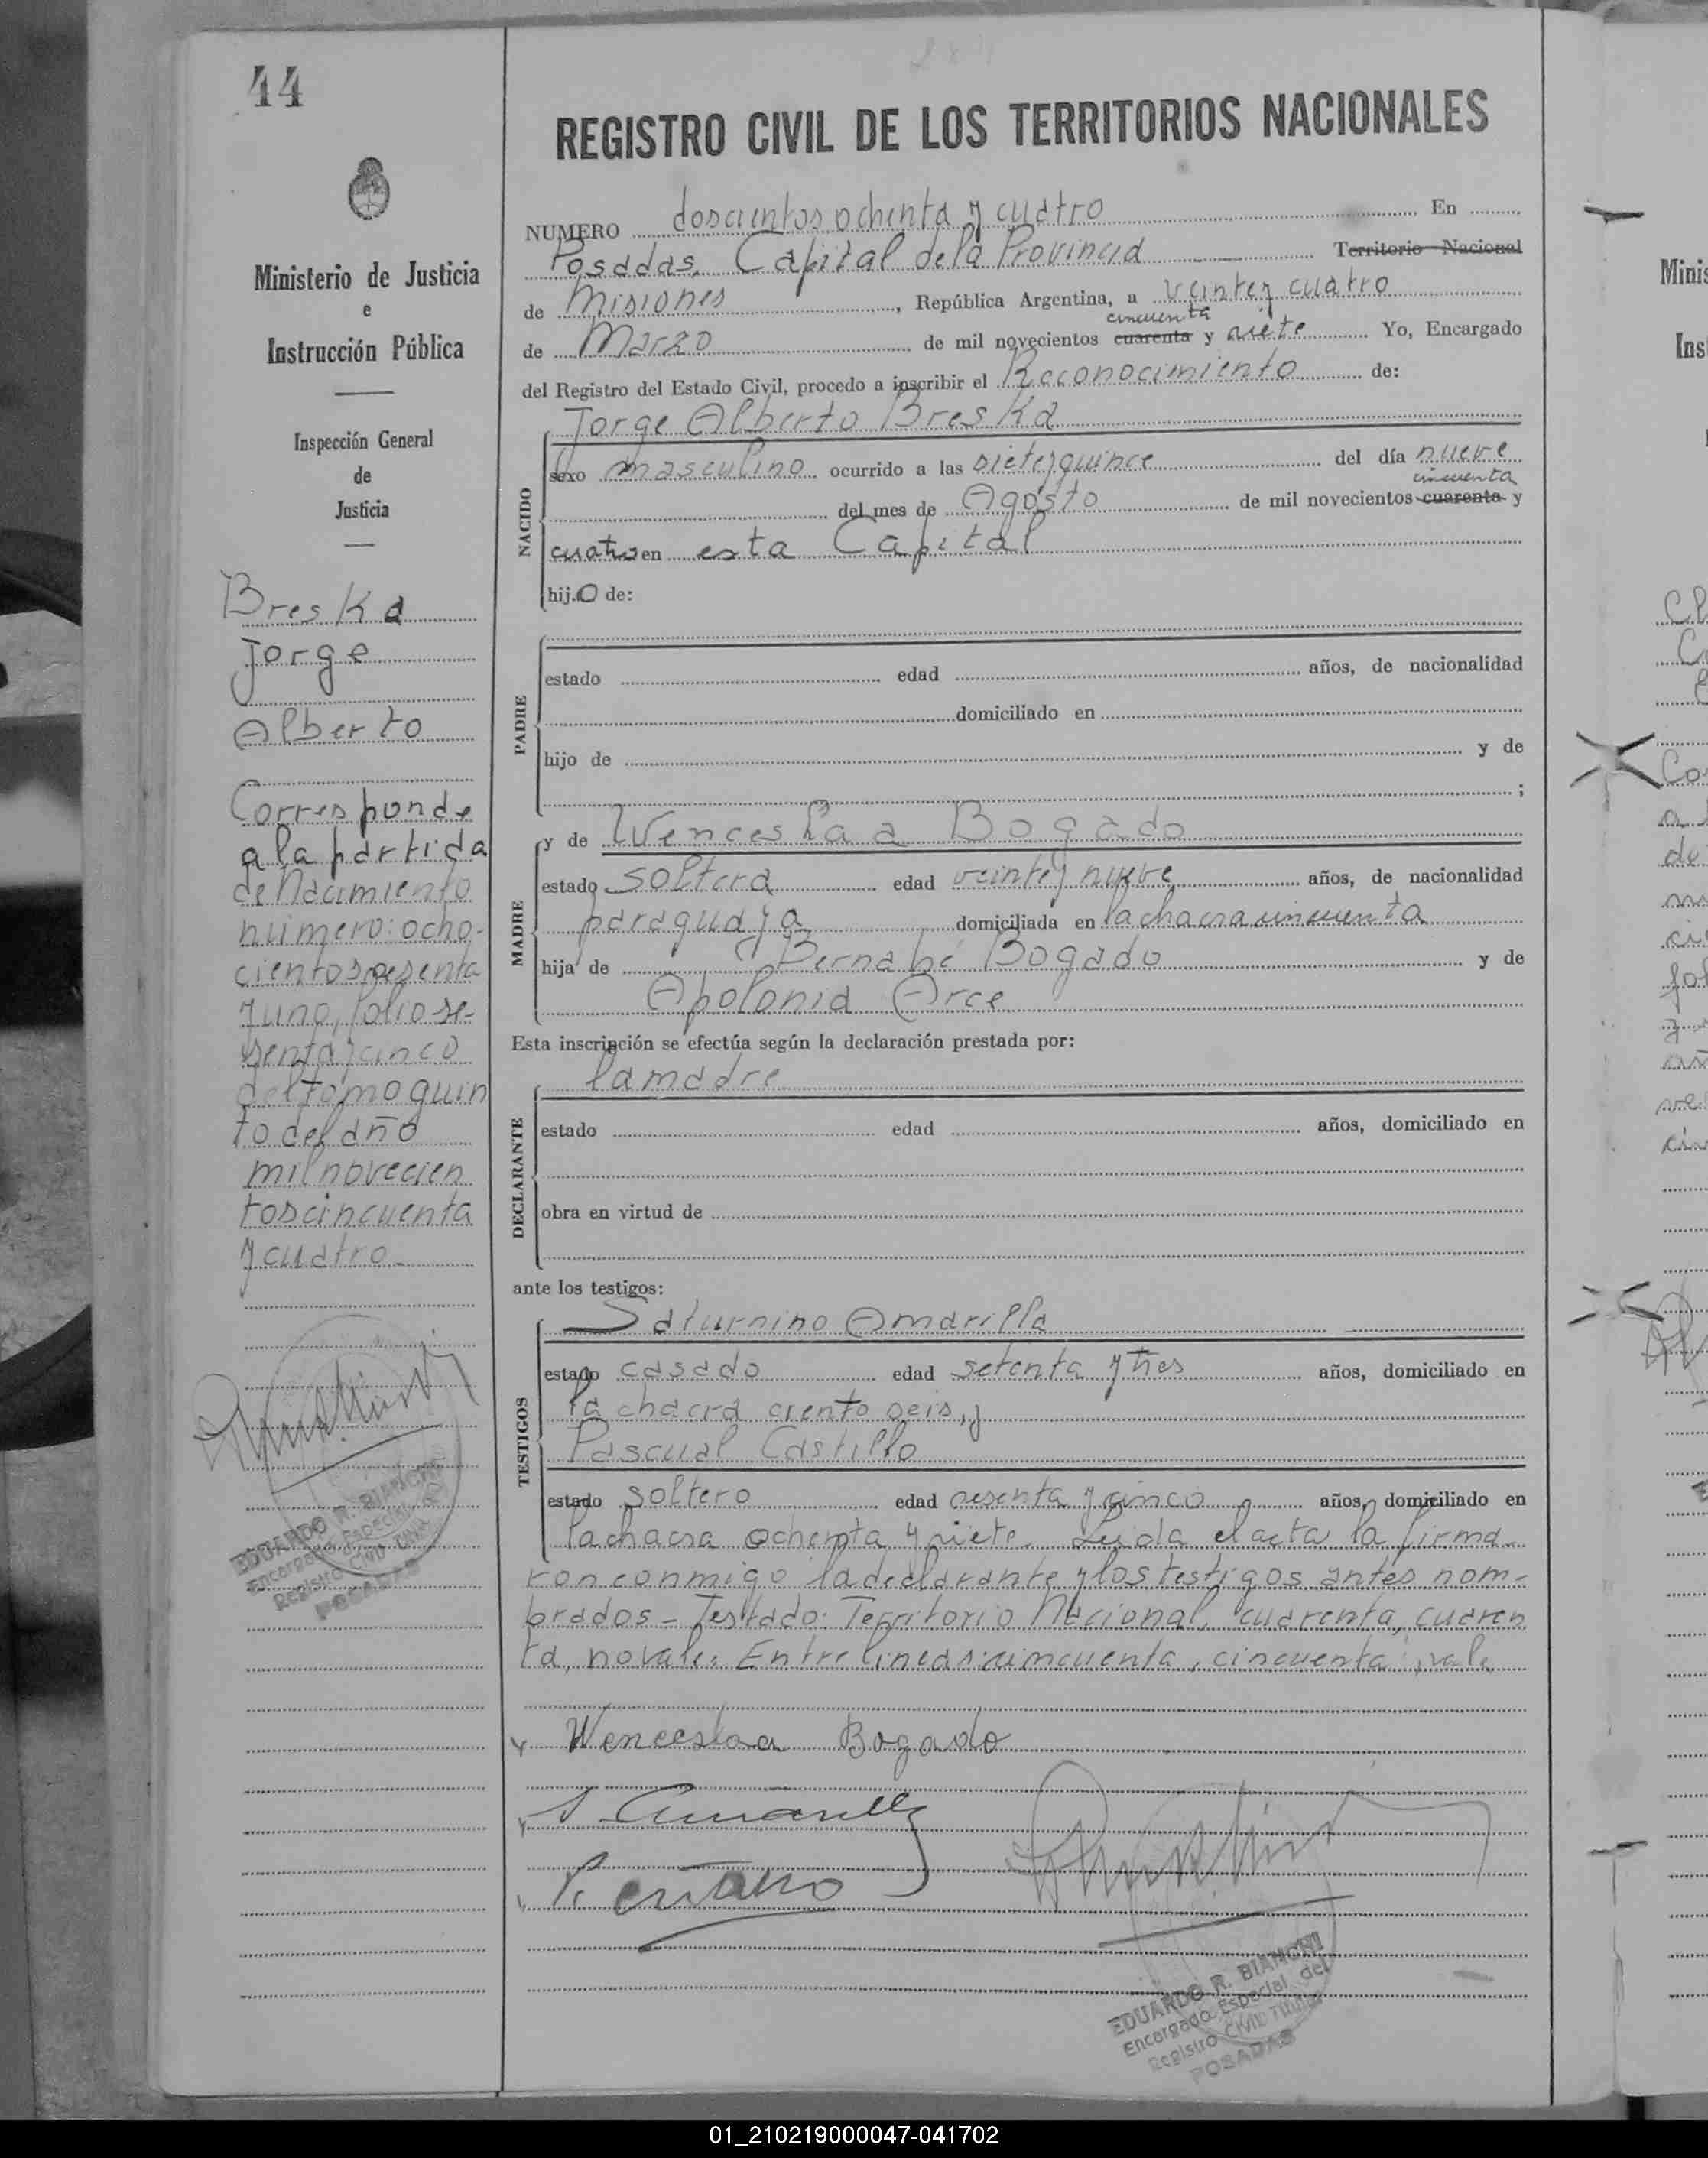 44
Ministerio de Justicia
e
Instrucción Pública
Inspección General
de
Justicia
Breska
Jorge
Alberto
Corresponde
a la partida
de Nacimiento
número: ocho-
cientos sesenta
y uno, folio se-
senta y cinco
del tomo quin
to del año
mil novecien
tos cincuenta
y cuatro.-
EDUARDO R. BIANCHI
Encargado Especial del
Registro Civil Titular
POSADAS
REGISTRO CIVIL DE LOS TERRITORIOS NACIONALES
NUMERO doscientos ochenta y cuatro En
Posadas, Capital de la Provincia Territorio Nacional
de Misiones, República Argentina, a veinte y cuatro
cincuenta
de Marzo de mil novecientos cuarenta y siete Yo, Encargado
del Registro del Estado Civil, procedo a inscribir el Reconocimiento de:
Jorge Alberto Breska
NACIDO
sexo masculino ocurrido a las siete y quince del día nueve
cincuenta
del mes de Agosto de mil novecientos cuarenta y
cuatro en esta Capital
hijo de:
PADRE
estado edad años, de nacionalidad
domiciliado en
hijo de y de
;
y de Wenceslaa Bogado
MADRE
estado soltera edad veinte y nueve años, de nacionalidad
paraguaya domiciliada en la chacra cincuenta
hija de Bernabé Bogado y de
Apolonia Arce
Esta inscripción se efectúa según la declaración prestada por:
la madre
DECLARANTE
estado edad años, domiciliado en
obra en virtud de
ante los testigos:
Saturnino Amarilla
TESTIGOS
estado casado edad setenta y tres años, domiciliado en
la chacra ciento seis, y
Pascual Castillo
estado soltero edad sesenta y cinco años, domiciliado en
la chacra ochenta y siete. Leída el acta la firma-
ron conmigo la declarante y los testigos antes nom-
brados - Testado: Territorio Nacional, cuarenta, cuaren
ta, no vale. Entre lineas: cincuenta, cincuenta: vale
Wenceslaa Bogado
S. Amarilla
EDUARDO R. BIANCHI
Encargado Especial del
Registro Civil Titular
POSADAS
01_210219000047-041702